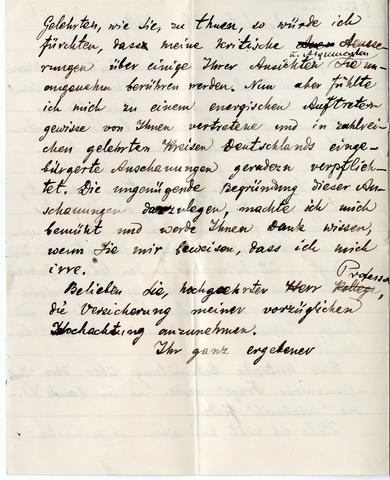 Gelehrten, wie Sie, zu thuen, so würde ich
fürchten, dass meine kritische Aeusse-
rungen über einige Ihrer Ansichten u. Argumenten Sie un-
angenehm berühren werden. Nun aber fühlte
ich mich zu einem energischen Auftreten
gewisse von Ihnen vertretene und in zahlrei-
chen gelehrten Kreisen Deutschlands einge-
bürgerte Anschauungen geradezu verpflich-
tet. Die ungenügende Begründung dieser An-
schauungen darzulegen, machte ich mich
bemüht und werde Ihnen Dank wissen,
wenn Sie mir beweisen, dass ich mich
irre.
Belieben Sie, hochgeehrter Herr Professor
die Versicherung meiner vorzüglichen
Hochachtung anzunehmen.
Ihr ganz ergebener